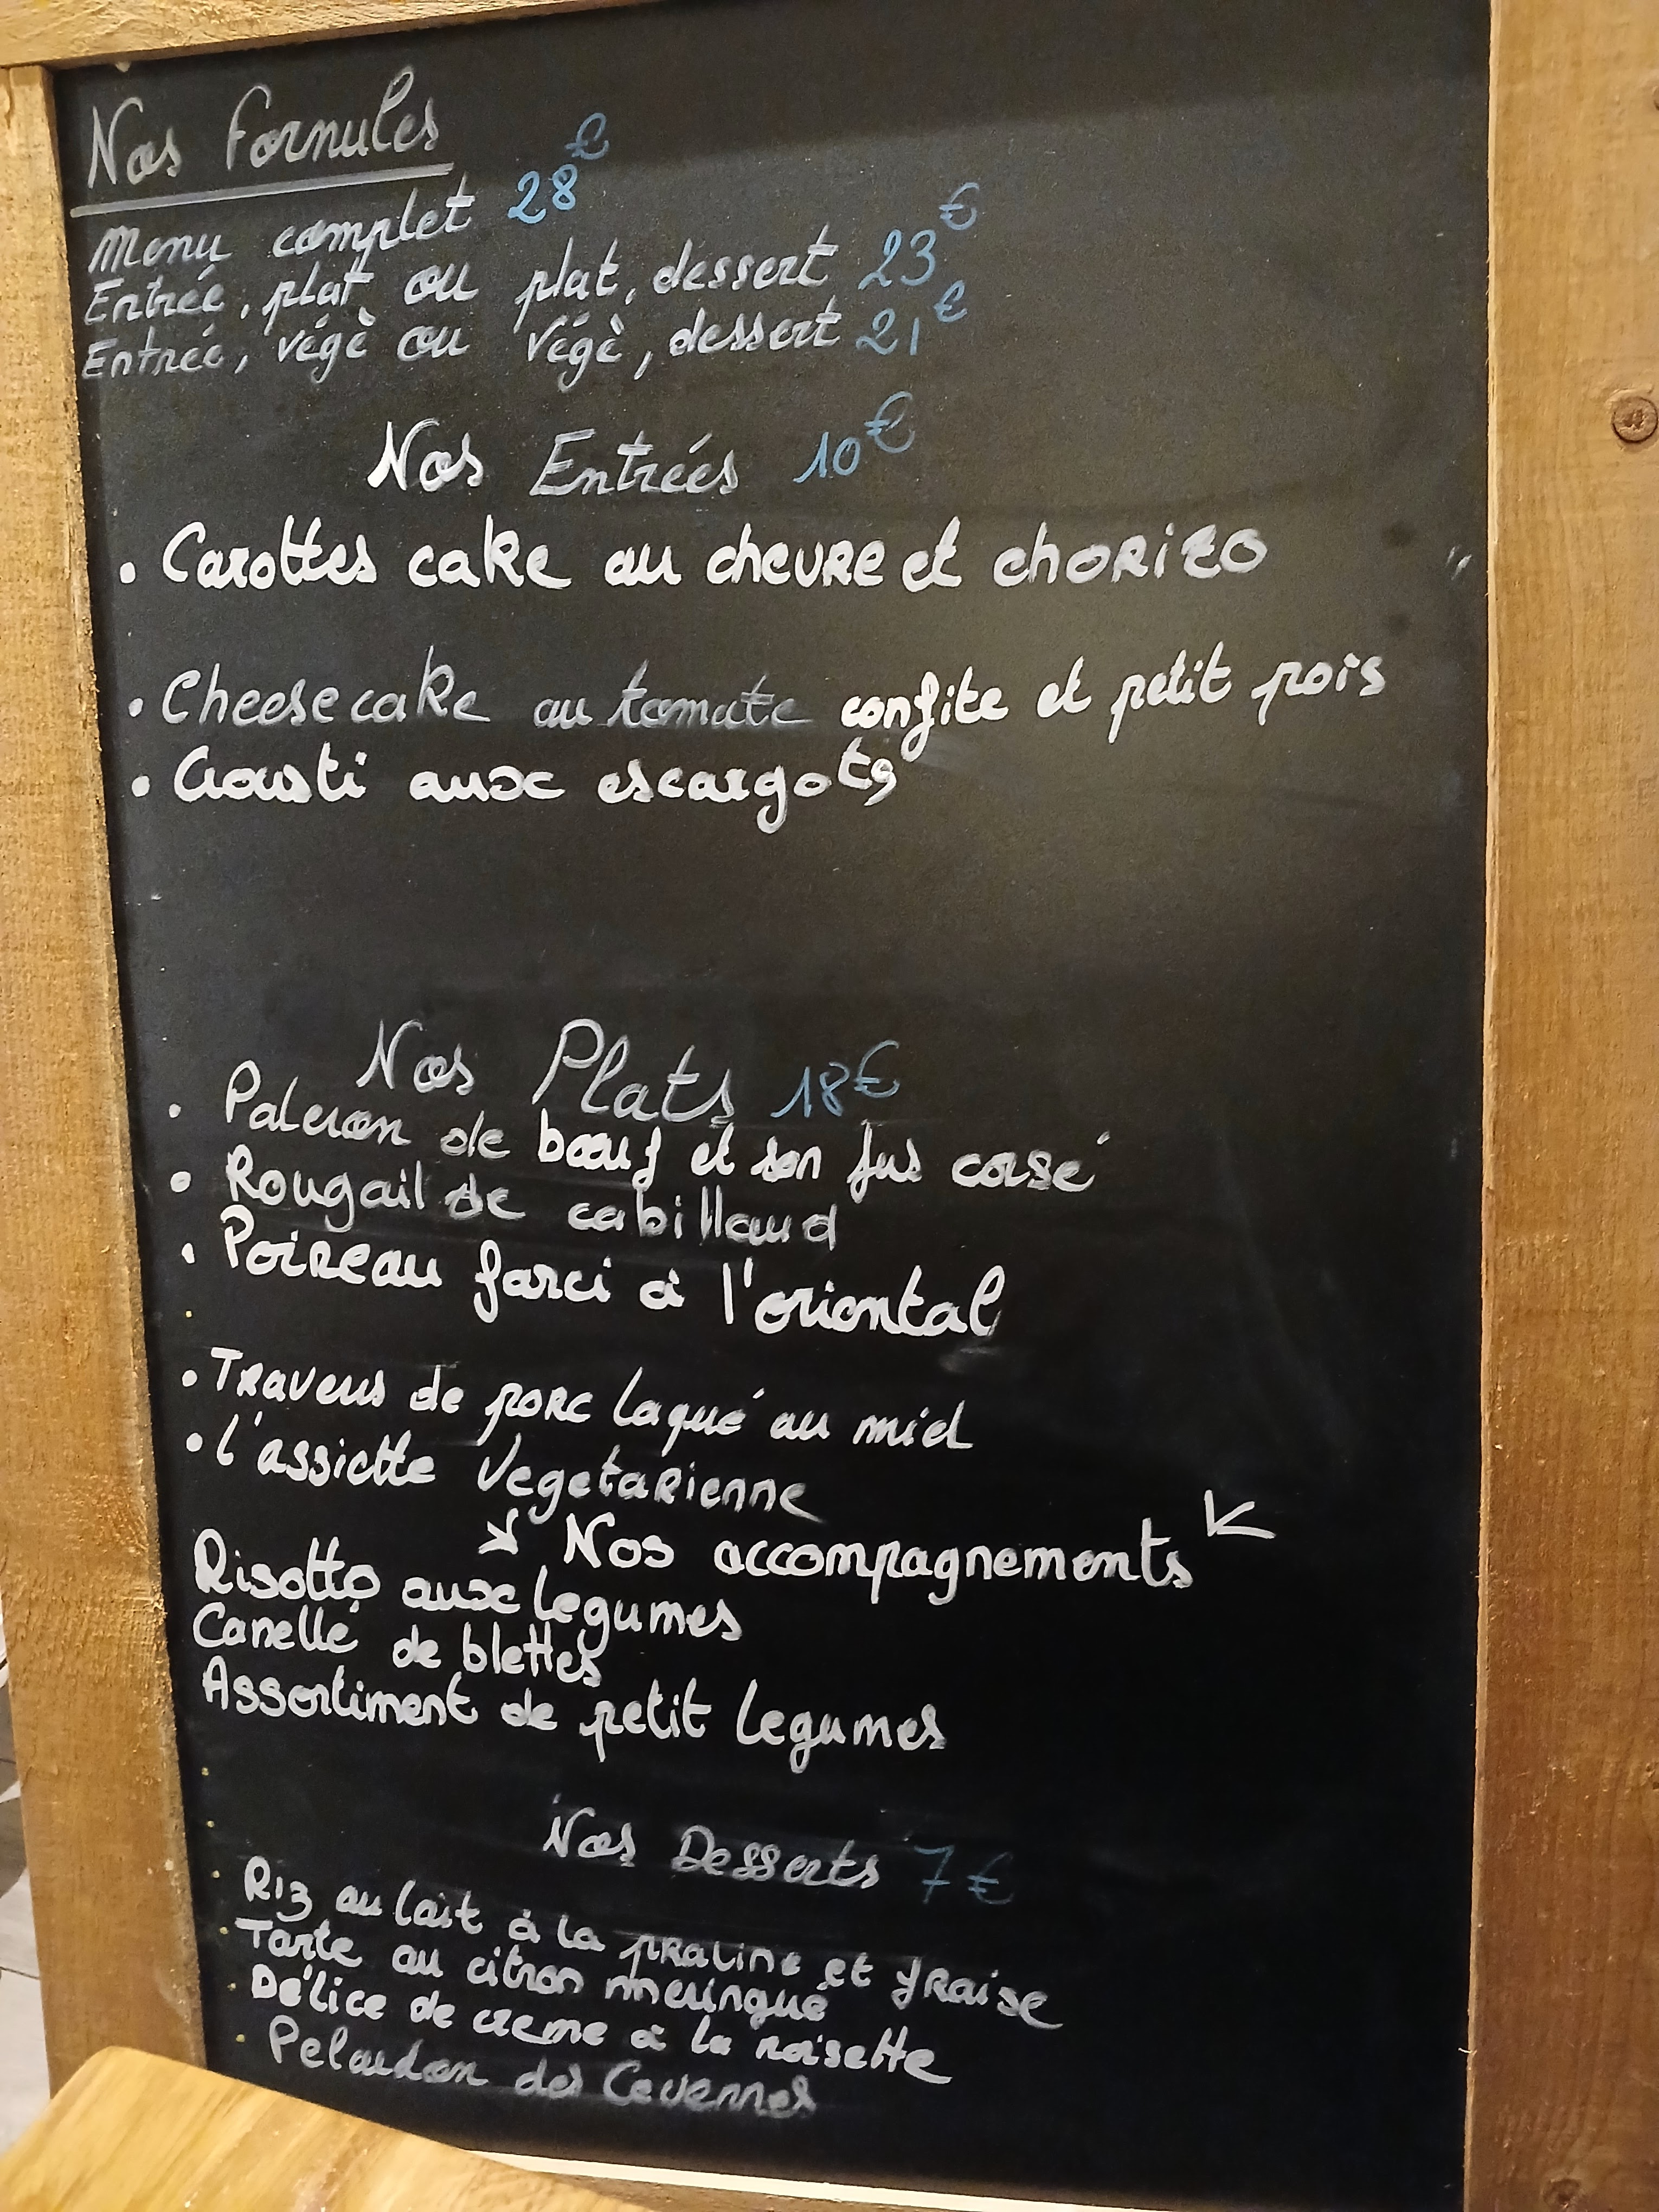 Nos Formules
Menu complet 28€
Entrée, plat ou plat, dessert 23€
Entrée, végè ou végè, dessert 21€
Nos Entrées 10€
• Carottes cake au chevre et chorizo
• Cheesecake au tomate confite et petit pois
• Crousti aux escargots
Nos Plats 18€
• Paleron de boeuf et son jus corsé
• Rougail de cabillaud
• Poireau farci à l'oriental
• Travers de porc laqué au miel
• l'assiette Vegetarienne
Nos accompagnements
Risotto aux legumes
Canellé de blettes
Assortiment de petit legumes
Nos Desserts 7€
Riz au lait à la praline et fraise
Tarte au citron meringué
Délice de creme à la noisette
Pelardon des Cevennes